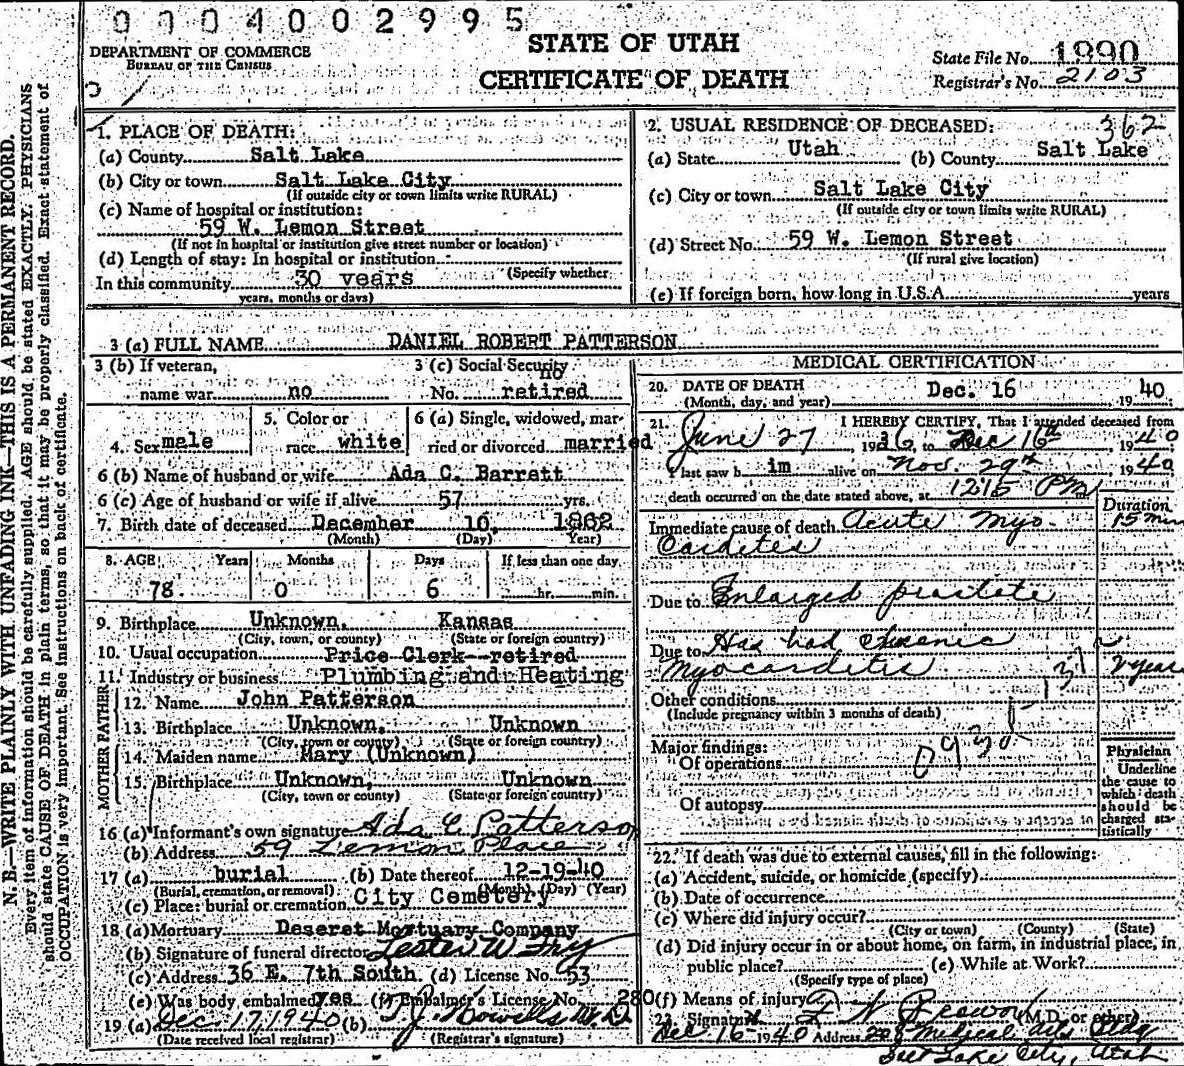 0004002995
DEPARTMENT OF COMMERCE
BUREAU OF THE CENSUS
STATE OF UTAH
CERTIFICATE OF DEATH
State File No. 1990
Registrar's No. 2103
N. B.—WRITE PLAINLY WITH UNFADING INK—THIS IS A PERMANENT RECORD.
Every item of information should be carefully supplied. AGE should be stated EXACTLY. PHYSICIANS
should state CAUSE OF DEATH in plain terms, so that it may be properly classified. Exact statement of
OCCUPATION is very important. See instructions on back of certificate.
1. PLACE OF DEATH:
(a) County Salt Lake
(b) City or town Salt Lake City
(If outside city or town limits write RURAL)
(c) Name of hospital or institution:
59 W. Lemon Street
(If not in hospital or institution give street number or location)
(d) Length of stay: In hospital or institution -
(Specify whether
In this community 30 years
years, months or days)
2. USUAL RESIDENCE OF DECEASED: 362
(a) State Utah (b) County Salt Lake
(c) City or town Salt Lake City
(If outside city or town limits write RURAL)
(d) Street No. 59 W. Lemon Street
(If rural give location)
(e) If foreign born, how long in U.S.A. years
3 (a) FULL NAME DANIEL ROBERT PATTERSON
3 (b) If veteran,
name war no
3 (c) Social Security
no
No. retired
4. Sex male
5. Color or
race white
6 (a) Single, widowed, mar-
ried or divorced married
6 (b) Name of husband or wife Ada C. Barrett
6 (c) Age of husband or wife if alive 57 yrs.
7. Birth date of deceased December 10, 1862
(Month) (Day) Year)
8. AGE Years Months Days If less than one day
78 0 6 hr. min.
9. Birthplace Unknown, Kansas
(City, town, or county) (State or foreign country)
10. Usual occupation Price Clerk--retired
11. Industry or business Plumbing and Heating
FATHER
12. Name John Patterson
13. Birthplace Unknown, Unknown
(City, town or county) (State or foreign country)
MOTHER
14. Maiden name Mary (Unknown)
15. Birthplace Unknown, Unknown
(City, town or county) (State or foreign country)
16 (a) Informant's own signature Ada C Patterson
(b) Address 59 Lemon Place
17 (a) burial (b) Date thereof 12-19-40
(Burial, cremation, or removal) (Month) (Day) (Year)
(c) Place: burial or cremation City Cemetery
18 (a) Mortuary Deseret Mortuary Company
(b) Signature of funeral director Lester W Fry
(c) Address 36 E. 7th South (d) License No. 53
(e) Was body embalmed yes (f) Embalmer's License No. 280
19 (a) Dec. 17, 1940 (b) T. J. Howells M.D.
(Date received local registrar) (Registrar's signature)
MEDICAL CERTIFICATION
20. DATE OF DEATH Dec. 16 40
(Month, day, and year) 19
21. I HEREBY CERTIFY, That I attended deceased from
June 27, 1936, to Dec 16th, 1940
I last saw him alive on Nov. 29th 1940
death occurred on the date stated above, at 1215 PM
Duration
Immediate cause of death Acute Myo- 15 min
carditis
Due to Enlarged prostate
Due to Has had chronic
Myocarditis 2 years
Other conditions
(Include pregnancy within 3 months of death)
Major findings:
Of operations
Of autopsy
Physician
Underline
the cause to
which death
should be
charged sta-
tistically
22. If death was due to external causes, fill in the following:
(a) Accident, suicide, or homicide (specify)
(b) Date of occurrence
(c) Where did injury occur?
(City or town) (County) (State)
(d) Did injury occur in or about home, on farm, in industrial place, in
public place? (e) While at Work?
(Specify type of place)
(f) Means of injury
23. Signature Brown (M.D. or other)
Dec-16-1940 Address Medical Arts Bldg
Salt Lake City, Utah